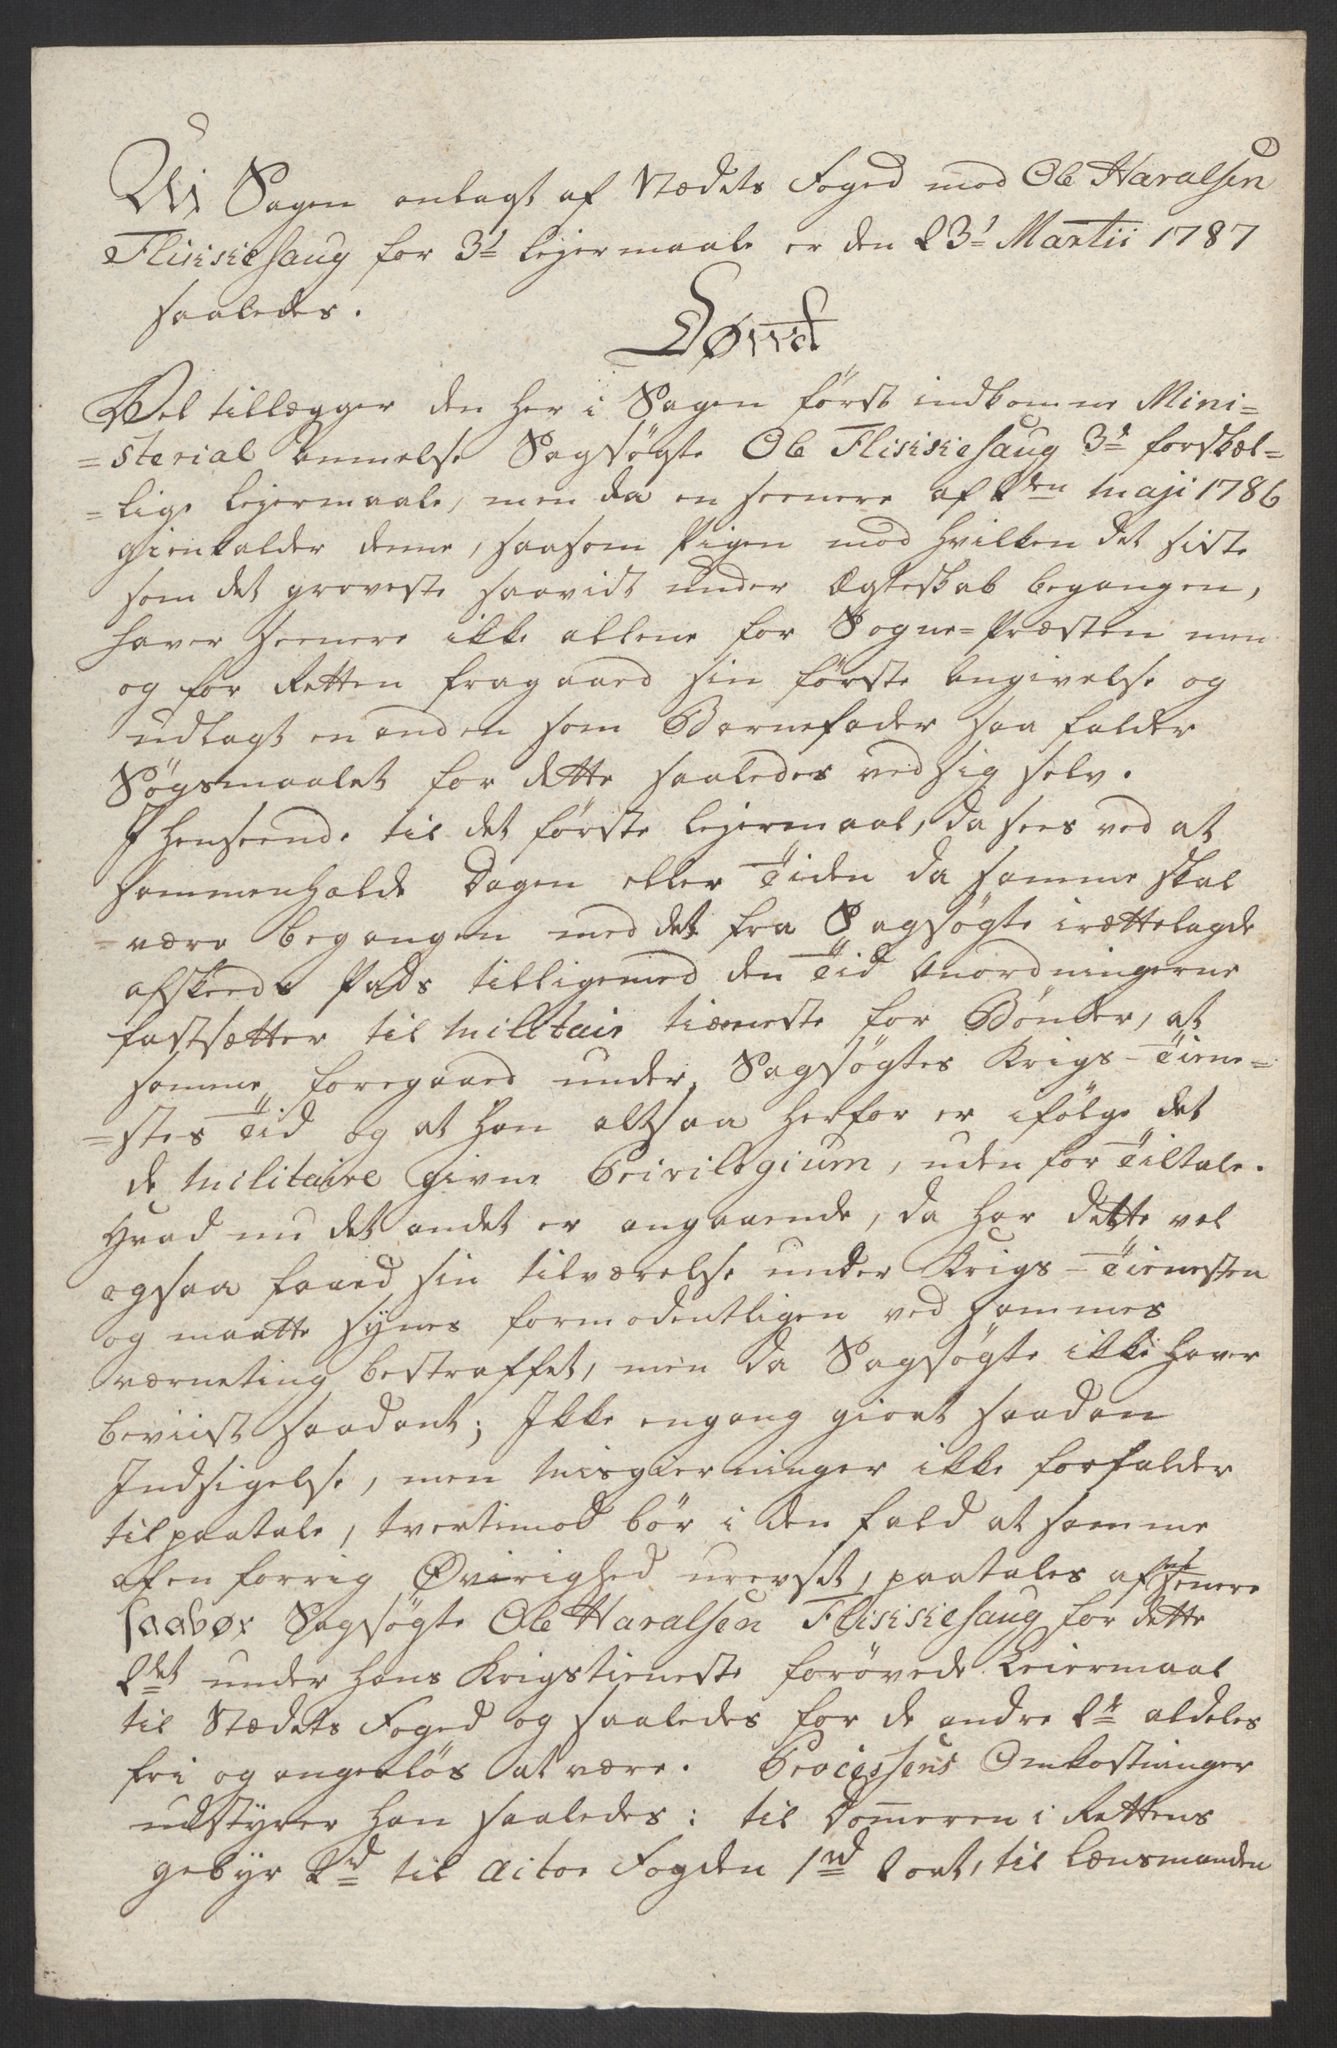 Udi Sagen anlagt af Stædets Foged mod Ole Haralsen
Fliskiehaug for 3de Lejermaale er den 23de Martii 1787
saaledes.
Dømt
Vel tillægger den her i Sagen først indkomne Mini=
=sterial Anmelse Sagsøgte Ole Fliskiehaug 3de forskæl=
=lige Lejermaale, men da en seenere af 2den Maji 1786
gienkalder denne, saasom Pigen mod hvilken det siste
som det groveste saavidt under Ægteskab begangen,
haver seenere ikke allene for Sogne=Præsten men
og for Retten fragaaed sin første Angivelse og
udlagt en anden som Barnefader saa falder
Søgsmaalet for dette saaledes ved sig selv.
I Henseende til det første Lejermaal, da sees ved at
sammenholde Dagen eller Tiden da samme skal
=være begangen med det fra Sagsøgte irættelagde
afskeeds Pads tilligemed den Tid Anordningerne
fastsætter til Militair tieneste for Bønder, at
samme foregaaed under Sagsøgtes Krigs-Tiene=
=stes Tid og at han altsaa herfor er ifølge det
de Militaire givne Privilegium, uden for Tiltale.
Hvad nu det andet er angaaende, da har dette vel
ogsaa faaed sin tilværelse under Krigs-Tienesten
og maatte synes formodentligen ved sammes
værneting bestraffet, men da Sagsøgte ikke haver
beviist saadant; Ikke engang giort saadan
Indsigelse, men Misgierninger ikke forfalder
til paatale, tvertimod bør i den fald at samme
af en forrig Øvrighed urevset, paatales af en senere
saa bør Sagsøgte Ole Haralsen Fliskiehaug for dette
2det under hans Krigstieneste forøvede Leiermaal
til Stædets Foged og saaledes for de andre 2de aldeles
fri og angerløs at være. Processens Omkostninger
udstyrer han saaledes: til Dommeren i Rettens
gebyr 2rd til Actor Fogden 1rd 2 ort, til Lænsmanden